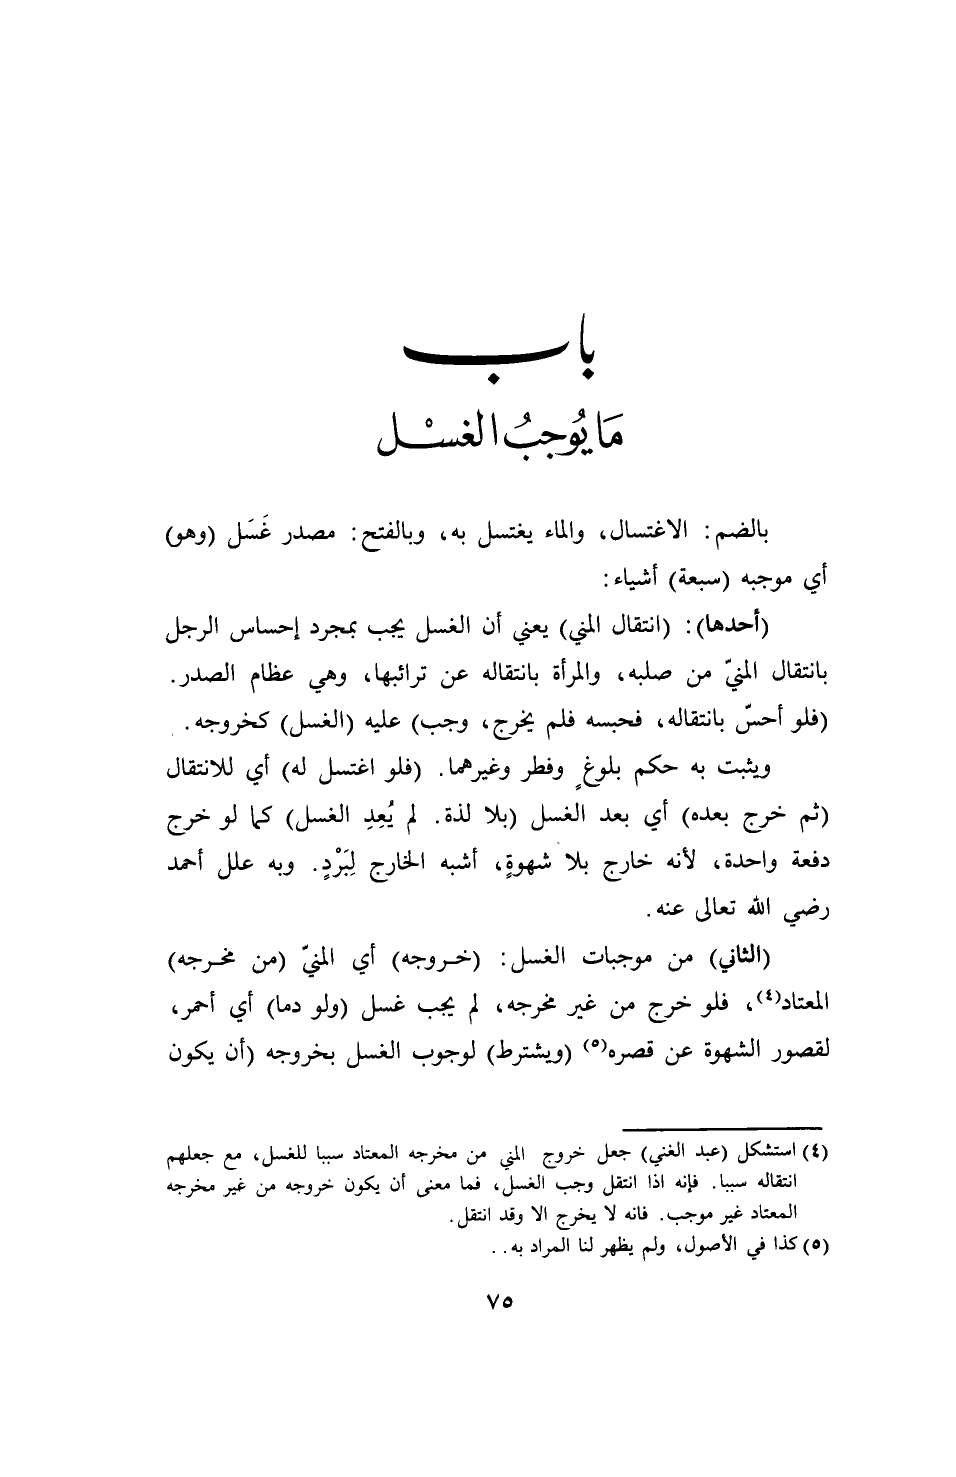 باب
مَا يُوجبُ الغسْل
بالضم: الاغتسال، والماء يغتسل به، وبالفتح: مصدر غَسَل (وهو)
أي موجبه (سبعة) أشياء:
(أحدها): (انتقال المني) يعني أن الغسل يجب بمجرد إحساس الرجل
بانتقال المنيّ من صلبه، والمرأة بانتقاله عن ترائبها، وهي عظام الصدر.
(فلو أحسّ بانتقاله، فحبسه فلم يخرج، وجب) عليه (الغسل) كخروجه.
ويثبت به حكم بلوغٍ وفطر وغيرهما. (فلو اغتسل له) أي للانتقال
(ثم خرج بعده) أي بعد الغسل (بلا لذة. لم يُعِدِ الغسل) كما لو خرج
دفعة واحدة، لأنه خارج بلا شهوةٍ، أشبه الخارج لِبَرْدٍ. وبه علل أحمد
رضي الله تعالى عنه.
(الثاني) من موجبات الغسل: (خروجه) أي المنيّ (من مخرجه)
المعتاد(٤)، فلو خرج من غير مخرجه، لم يجب غسل (ولو دما) أي أحمر،
لقصور الشهوة عن قصره(٥) (ويشترط) لوجوب الغسل بخروجه (أن يكون
(٤) استشكل (عبد الغني) جعل خروج المني من مخرجه المعتاد سببا للغسل، مع جعلهم
انتقاله سببا. فإنه اذا انتقل وجب الغسل، فما معنى أن يكون خروجه من غير مخرجه
المعتاد غير موجب. فانه لا يخرج الا وقد انتقل.
(٥) كذا في الأصول، ولم يظهر لنا المراد به..
٧٥